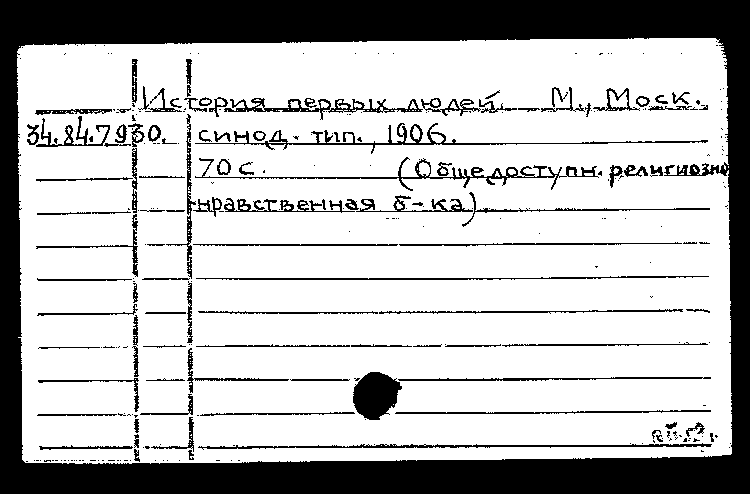 История первых людей. М., Моск.
34.84.7930. синод. тип., 1906.
70 с. (Общедоступн. религиозно
-нравственная б-ка).